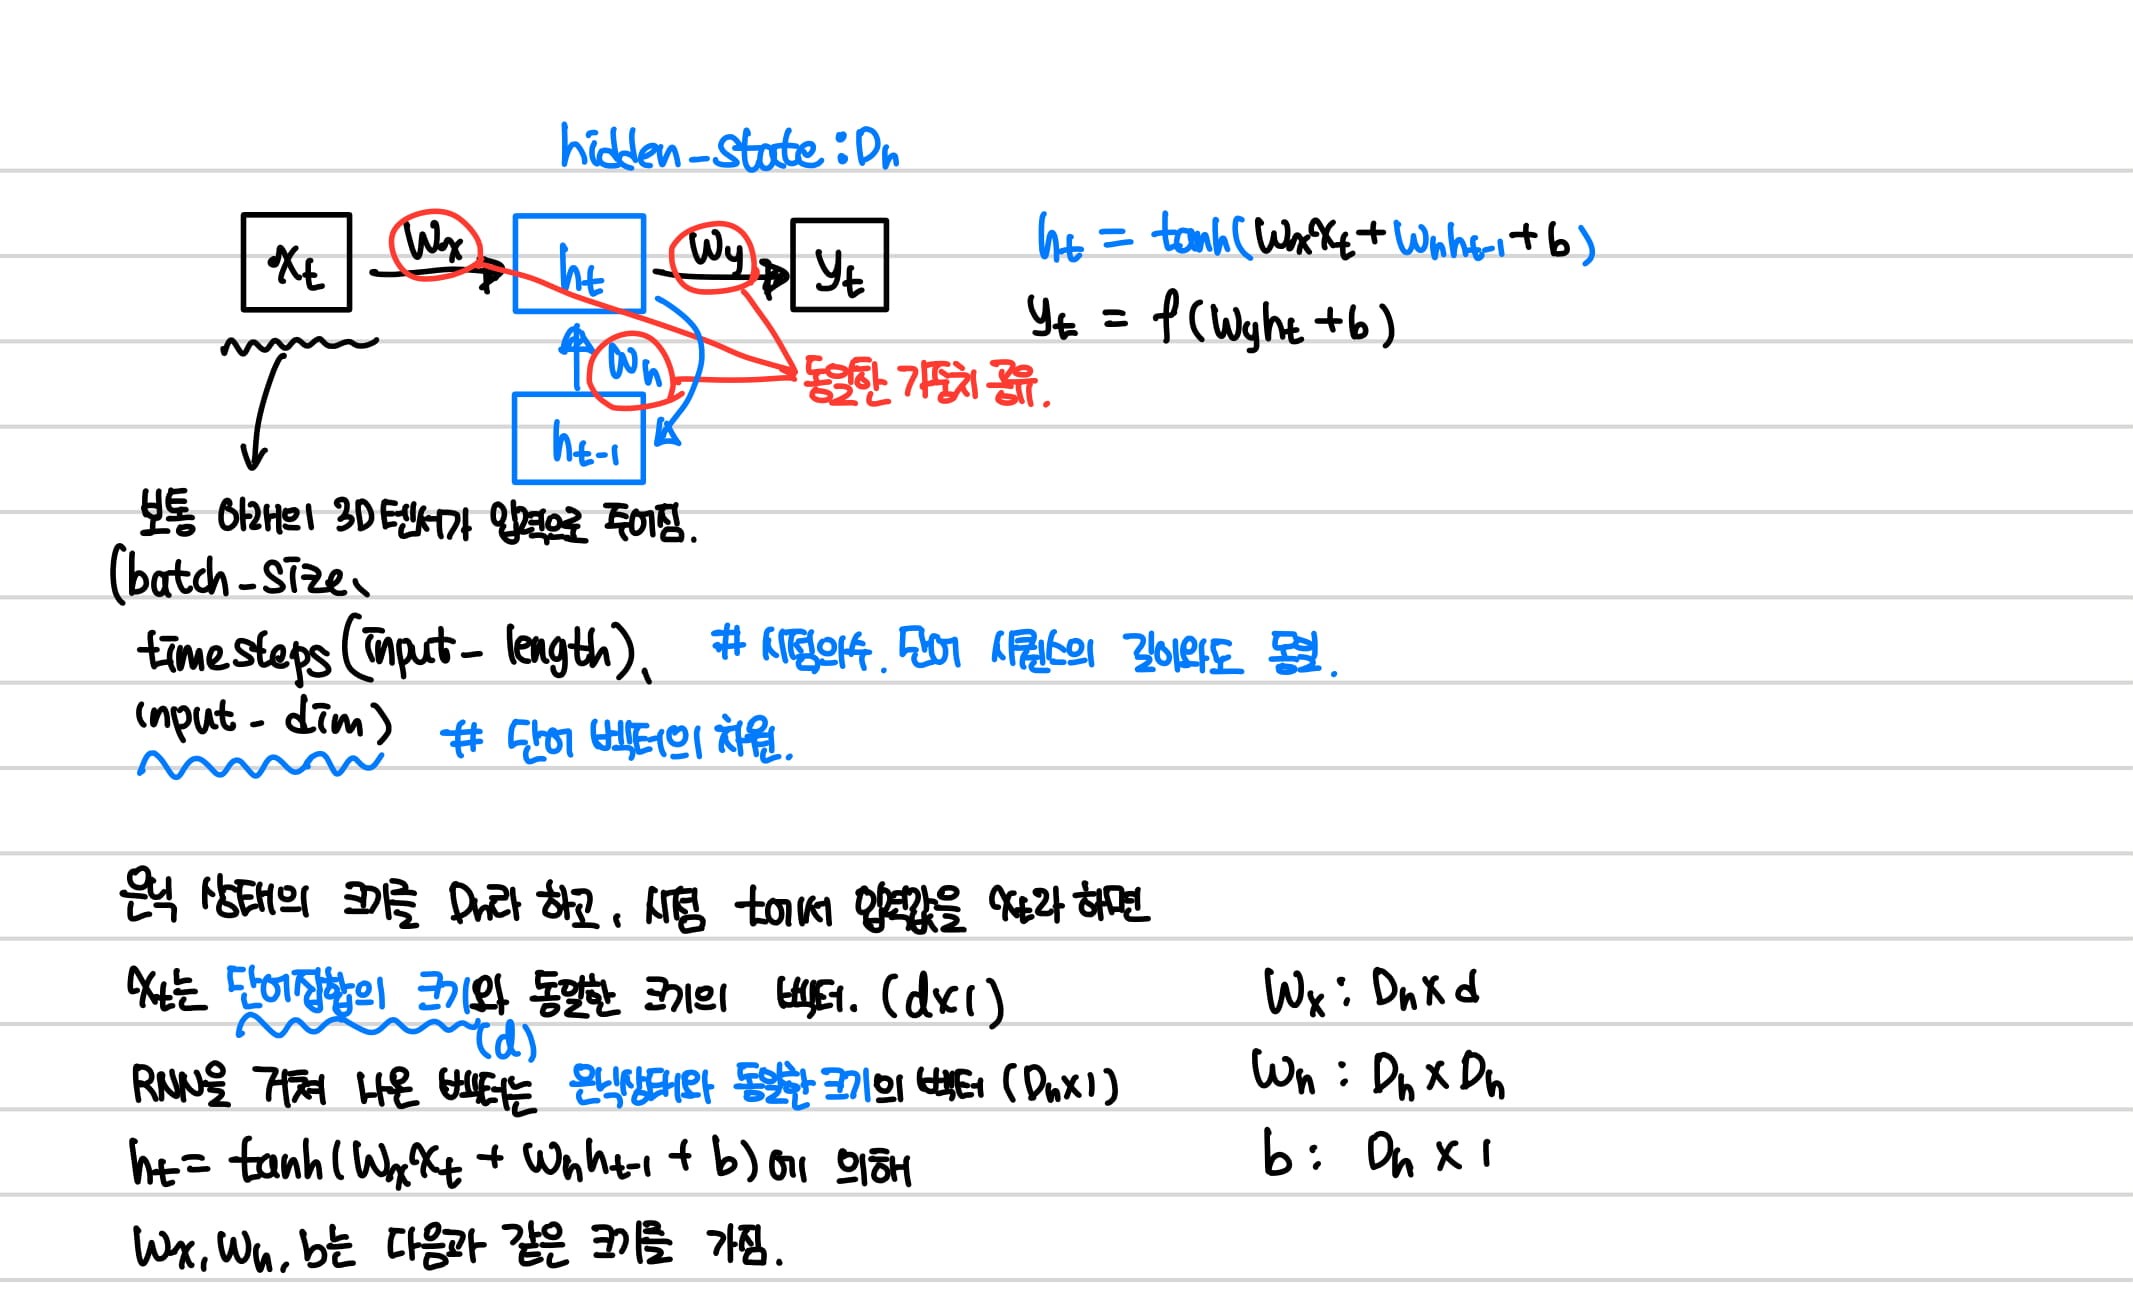 hidden-state : Dh
xt Wx ht Wy yt
ht = tanh(Wxxt + Whht-1 + b)
yt = f(Wyht + b)
Wh
동일한 가중치 공유.
ht-1
보통 아래의 3D텐서가 입력으로 주어짐.
(batch-size,
timesteps(input-length), # 시점의수. 단어 시퀀스의 길이와도 동일.
input-dim) # 단어 벡터의 차원.
은닉 상태의 크기를 Dh라 하고, 시점 t에서 입력값을 xt라 하면
xt는 단어집합의 크기와 동일한 크기의 벡터. (dx1)
(d)
RNN을 거쳐 나온 벡터는 은닉상태와 동일한 크기의 벡터 (Dhx1)
ht = tanh(Wxxt + Whht-1 + b)에 의해
Wx, Wh, b는 다음과 같은 크기를 가짐.
Wx : Dh x d
Wh : Dh x Dh
b : Dh x 1